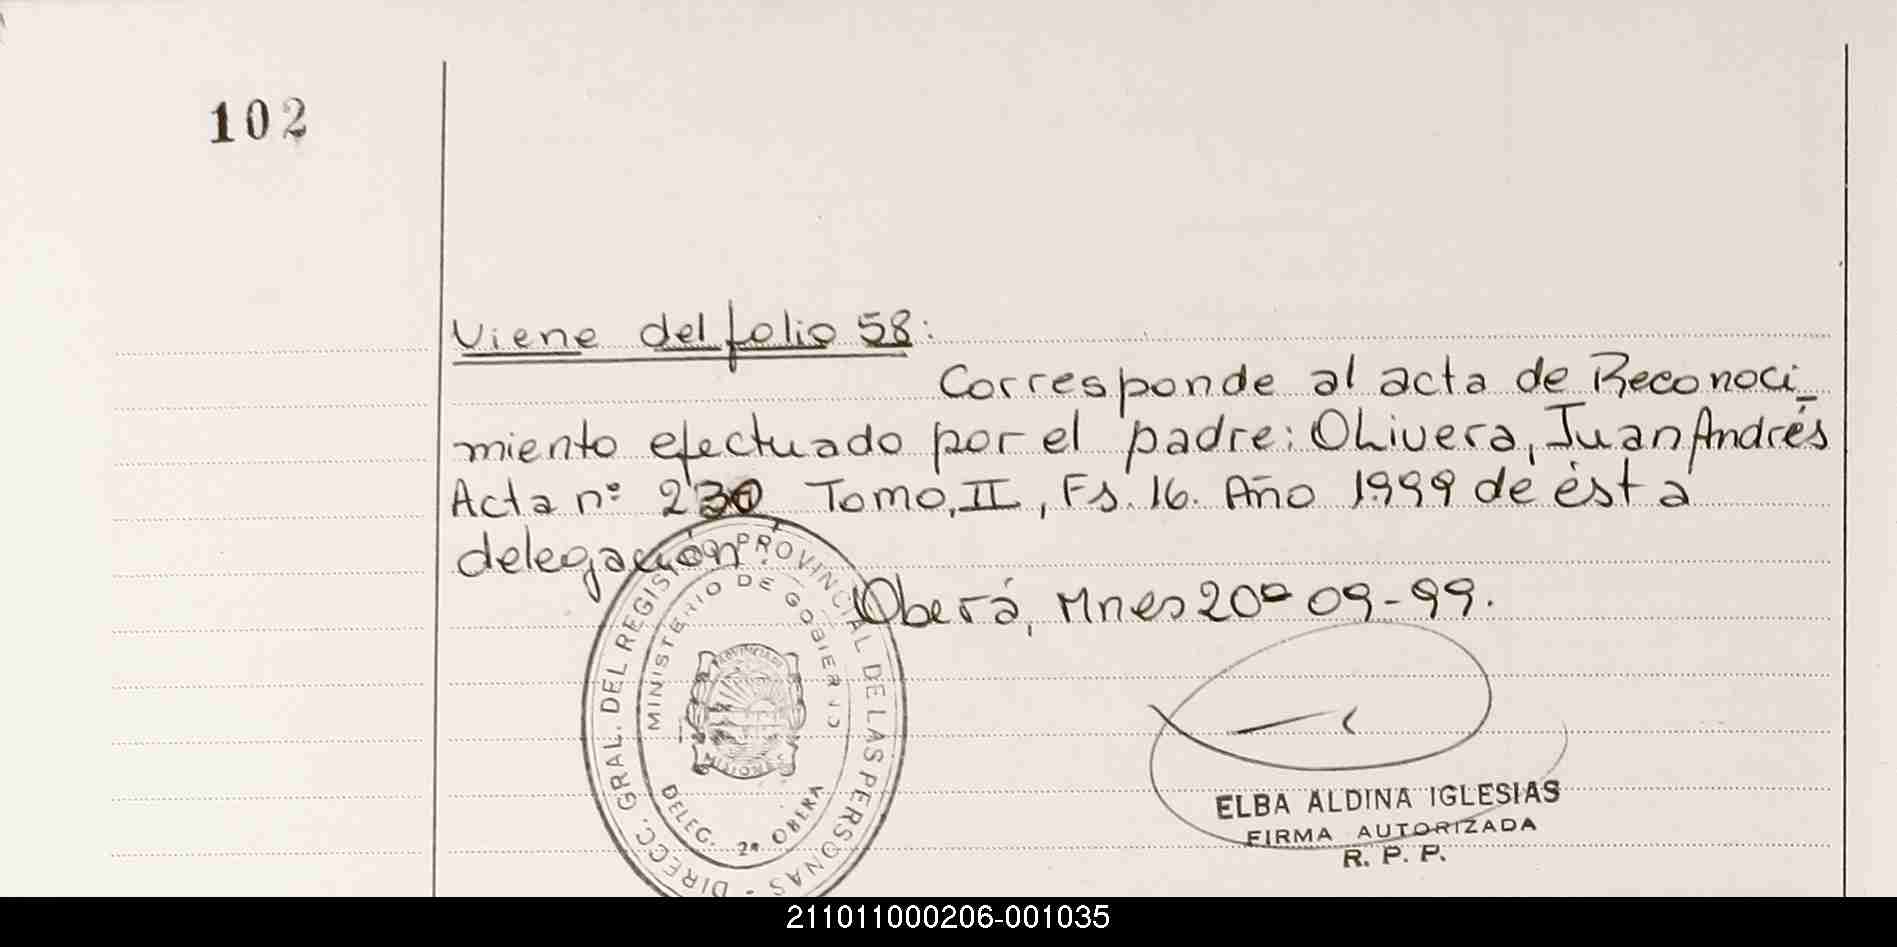 102
Viene del folio 58:
Corresponde al acta de Reconoci_
miento efectuado por el padre: OLivera, Juan Andrés
Acta n° 230 Tomo, II, Fs. 16. Año 1999 de ésta
delegación.
Oberá, Mnes 20- 09-99.
DIRECC. GRAL. DEL REGISTRO PROVINCIAL DE LAS PERSONAS -
MINISTERIO DE GOBIERNO
DELEG. 2ª OBERA
ELBA ALDINA IGLESIAS
FIRMA AUTORIZADA
R. P. P.
211011000206-001035